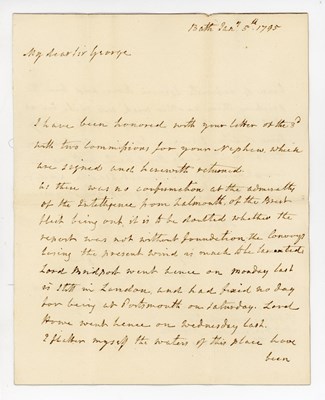 Bath Jany. 5th 1795
My dear Sir George
I have been honored with your letter of the 3d
with two commissions for your Nephew, which
are signed and herewith returned.
As there was no confirmation at the admiralty
of the Intelligence from Falmouth, of the Brest
fleet being out it is to be doubted whether the
report was not without foundation the Convoys
losing the present wind is much to be lamented,
Lord Bridport went hence on monday last
is still in London, and had fixed no day
for being at Portsmouth on saturday. Lord
Howe went hence on Wednesday last.
I flatter myself the waters of this place have
been